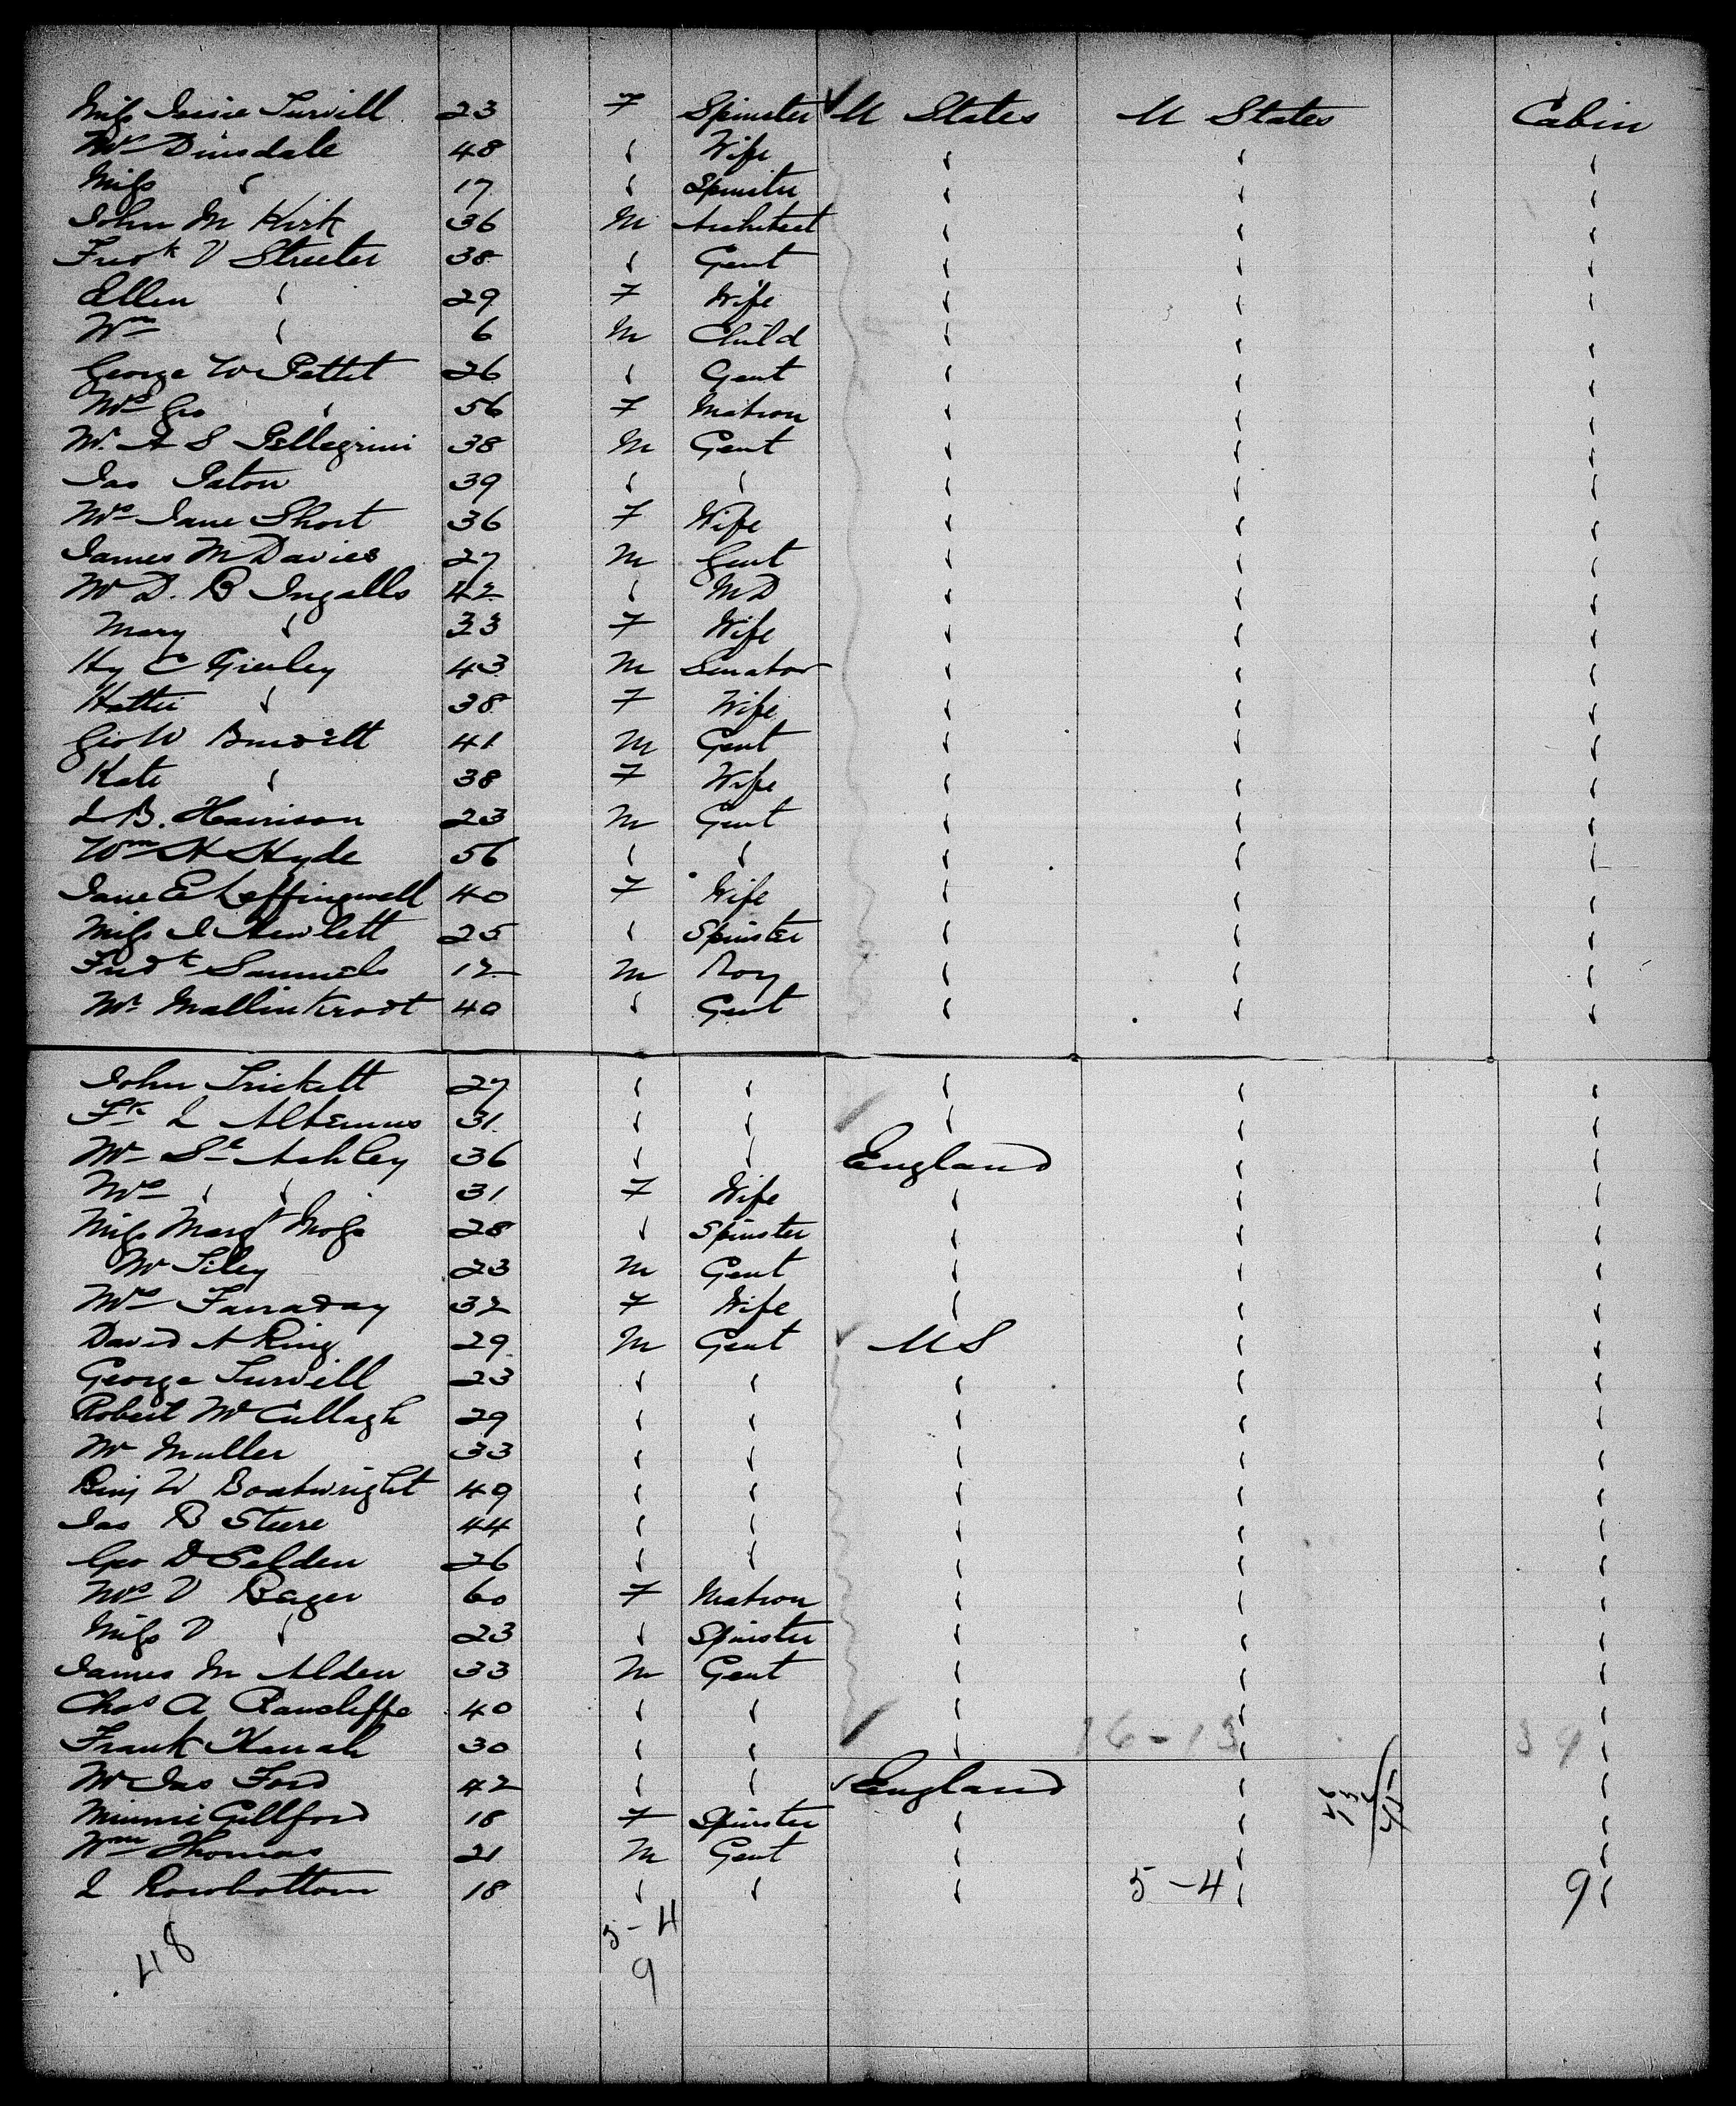 Miss Jessie Turvill 23 F Spinster U States U States Cabin
Mrs Dinsdale 48 " Wife " " "
Miss " 17 " Spinster " " "
John M Kirk 36 M Architect " " "
Fredk V Streeter 38 " Gent " " "
Ellen " 29 F Wife " " "
Wm " 6 M Child " " "
George W Pettit 26 " Gent " " "
Mrs Geo " 56 F Matron " " "
Mr A S Pellegrini 38 M Gent " " "
Jas Paton 39 " " " " "
Mrs Jane Short 36 F Wife " " "
James M Davies 27 M Gent " " "
Mr D. B Ingalls 42 " MD " " "
Mary " 33 F Wife " " "
Hy C 43 M Senator " " "
Hattie " 38 F Wife " " "
Geo W Burdett 41 M Gent " " "
Kate " 38 F Wife " " "
J B. Harrison 23 M Gent " " "
Wm H Hyde 56 " " " " "
Jane E Leffingwell 40 F Wife " " "
Miss J Hewlett 25 " Spinster " " "
Fredk Samuels 12 M Boy " " "
Mr Mallinkrodt 40 " Gent " " "
John Trickett 27 " " " " "
Fk L Altemus 31 " " " " "
Mr St Ashley 36 " " England " "
Mrs " " 31 F Wife " " "
Miss Margt Moss 28 " Spinster " " "
Mr Tiley 23 M Gent " " "
Mrs Farraday 32 F Wife " " "
David A Ring 29 M Gent U S " "
George Turvill 23 " " " " "
Robert McCullagh 29 " " " " "
Mr Muller 33 " " " " "
Benj W Boatwright 49 " " " " "
Jas B Steere 44 " " " " "
Geo D Selden 26 " " " " "
Mrs V Bager 60 F Matron " " "
Miss V " 23 " Spinster " " "
James M Alden 33 M Gent " " "
Chas A Rawcliffe 40 " " " " "
Frank Hannah 30 " " " 26-13 " 39 "
Mr Jas Ford 42 " " England " "
Minnie Gillford 18 F Spinster " " "
Wm Thomas 21 M Gent " " "
J Rowbottom 18 " " " 5-4 " 9 "
5-4
48
9